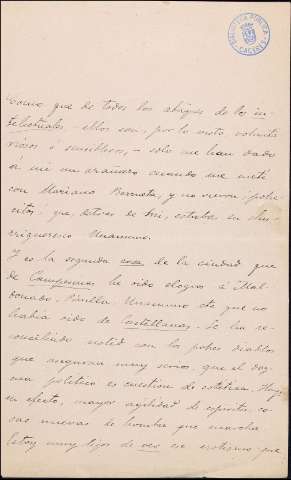 BIBLIOTECA PÚBLICA
CACERES
como que de todos los ataques de los in-
telectuales - ellos son, por lo visto, volunta
riosos ó - solo me han dado
á mi un arañazo cuando me metí
con Mariano y no vieron,
que, detrás de mi, estaba su chu-
rrigueresco Unamuno.
Y es la segunda cosa de la ciudad que
de Campesinas he oido elogios á Mal-
donado, Pinilla, Unamuno etc que no
había oido de Castellanas. Se ha re-
conciliado usted con los pobres diablos
que aseguran muy serios, que el dog-
ma politico es cuestion de estetica. Hay
en efecto, mayor agilidad de espiritu, co-
sas nuevas de hombre que marcha
Estoy muy lejos de ver ese erotismo que